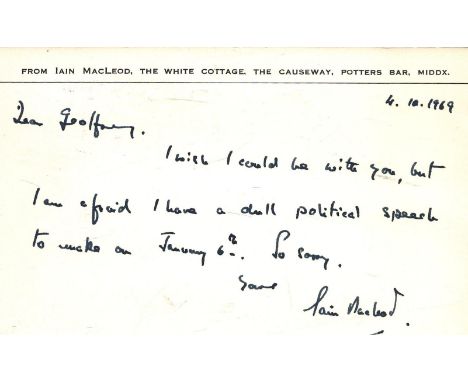 FROM IAIN MACLEOD, THE WHITE COTTAGE, THE CAUSEWAY, POTTERS BAR, MIDDX.
4. 12. 1969
Dear Geoffrey.
I wish I could be with you, but
I am afraid I have a dull political speech
to make on January 6th. So sorry.
Yours
Iain Macleod.